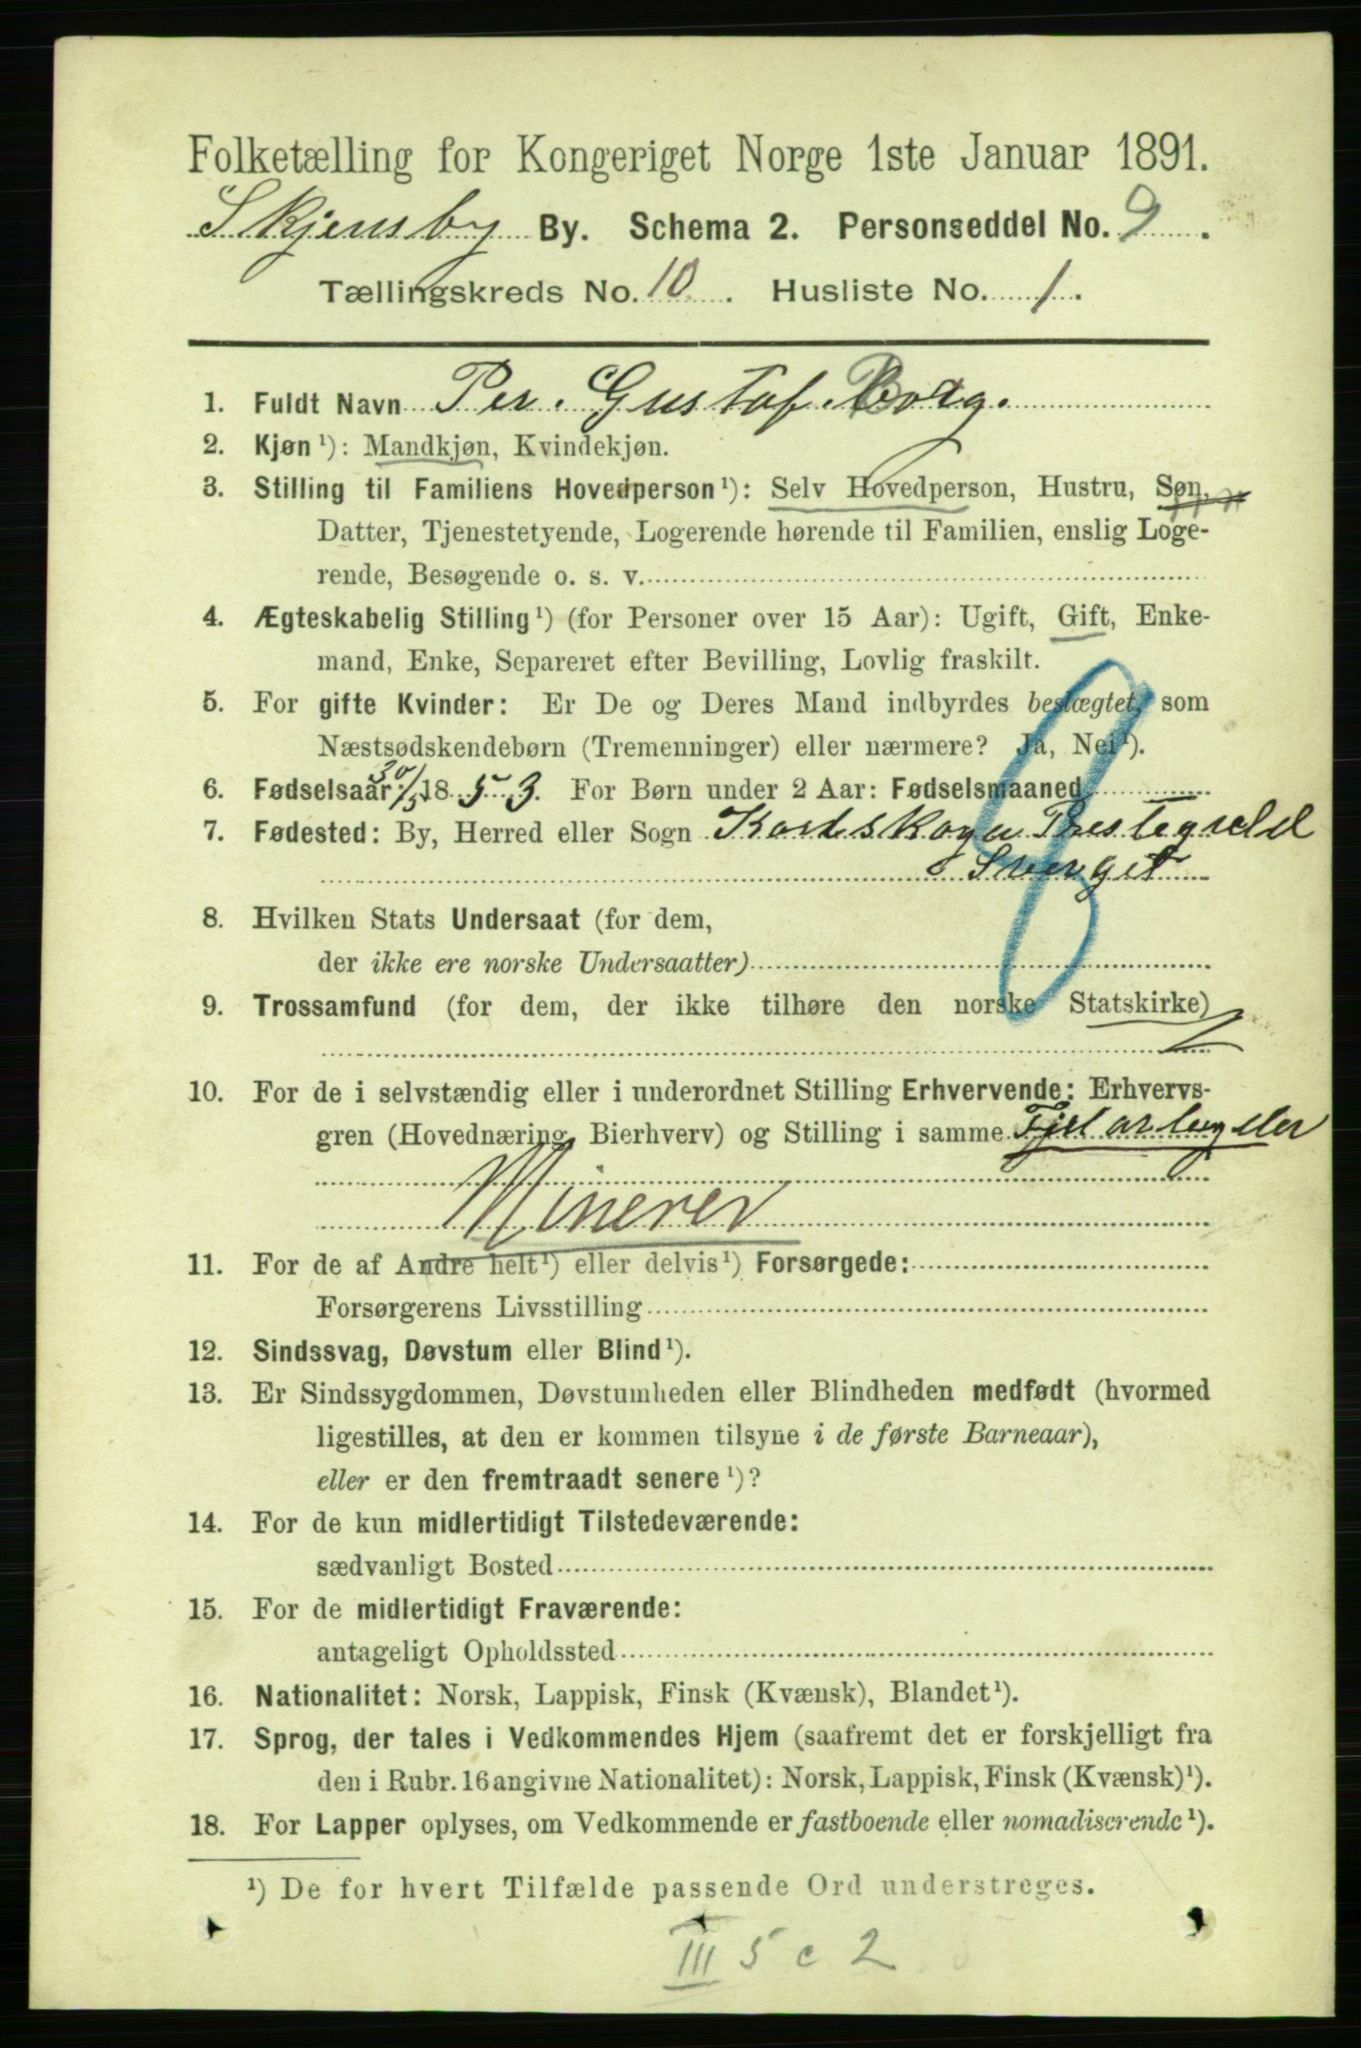 Folketælling for Kongeriget Norge 1ste Januar 1891.
Skjensby By. Schema 2. Personseddel No. 9.
Tællingskreds No. 10. Husliste No. 1.
1. Fuldt Navn Per. Gustaf. Borg.
2. Kjøn¹): Mandkjøn, Kvindekjøn.
3. Stilling til Familiens Hovedperson¹): Selv Hovedperson, Hustru, Søn,
Datter, Tjenestetyende, Logerende hørende til Familien, enslig Loge-
rende, Besøgende o. s. v.
4. Ægteskabelig Stilling¹) (for Personer over 15 Aar): Ugift, Gift, Enke-
mand, Enke, Separeret efter Bevilling, Lovlig fraskilt.
5. For gifte Kvinder: Er De og Deres Mand indbyrdes beslægtet, som
Næstsødskendebørn (Tremenninger) eller nærmere? Ja, Nei¹).
6. Fødselsaar: 30/5 1853. For Børn under 2 Aar: Fødselsmaaned
7. Fødested: By, Herred eller Sogn Karlskoga Prestegield
Sverget
8. Hvilken Stats Undersaat (for dem,
der ikke ere norske Undersaatter)
9. Trossamfund (for dem, der ikke tilhøre den norske Statskirke)
10. For de i selvstændig eller i underordnet Stilling Erhvervende: Erhvervs-
gren (Hovednæring, Bierhverv) og Stilling i samme Fjelarbeyder
Minerer
11. For de af Andre helt¹) eller delvis¹) Forsørgede:
Forsørgerens Livsstilling
12. Sindssvag, Døvstum eller Blind¹).
13. Er Sindssygdommen, Døvstumheden eller Blindheden medfødt (hvormed
ligestilles, at den er kommen tilsyne i de første Barneaar),
eller er den fremtraadt senere¹)?
14. For de kun midlertidigt Tilstedeværende:
sædvanligt Bosted
15. For de midlertidigt Fraværende:
antageligt Opholdssted
16. Nationalitet: Norsk, Lappisk, Finsk (Kvænsk), Blandet¹).
17. Sprog, der tales i Vedkommendes Hjem (saafremt det er forskjelligt fra
den i Rubr. 16 angivne Nationalitet): Norsk, Lappisk, Finsk (Kvænsk)¹).
18. For Lapper oplyses, om Vedkommende er fastboende eller nomadiserende¹).
¹) De for hvert Tilfælde passende Ord understreges.
III 5 c 2